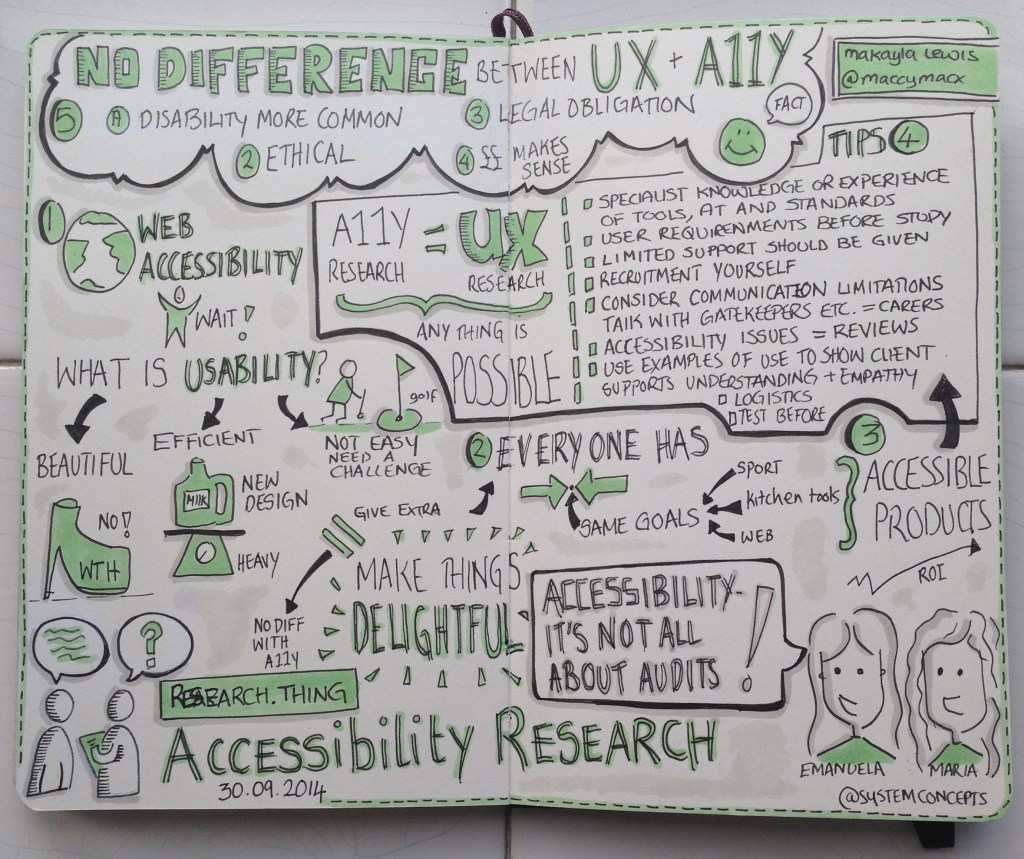 NO DIFFERENCE BETWEEN UX + A11Y
5 A DISABILITY MORE COMMON
2 ETHICAL
3 LEGAL OBLIGATION
4 ££ MAKES
SENSE
FACT
makayla Lewis
@maccymacx
1 WEB
ACCESSIBILITY
WAIT!
WHAT IS USABILITY?
BEAUTIFUL
NO!
WTH
EFFICIENT
MILK
NEW
DESIGN
HEAVY
golf
NOT EASY
NEED A
CHALLENGE
A11Y = UX
RESEARCH RESEARCH
ANY THING IS
POSSIBLE
TIPS 4
SPECIALIST KNOWLEDGE OR EXPERIENCE
OF TOOLS, AT AND STANDARDS
USER REQUIRENMENTS BEFORE STUDY
LIMITED SUPPORT SHOULD BE GIVEN
RECRUITMENT YOURSELF
CONSIDER COMMUNICATION LIMITATIONS
TALK WITH GATEKEEPERS ETC. = CARERS
ACCESSIBILITY ISSUES = REVIEWS
USE EXAMPLES OF USE TO SHOW CLIENT
SUPPORTS UNDERSTANDING + EMPATHY
LOGISTICS
TEST BEFORE
2 EVERYONE HAS
SAME GOALS
SPORT
kitchen tools
WEB
3 ACCESSIBLE
PRODUCTS
ROI
GIVE EXTRA
MAKE THINGS
DELIGHTFUL
NO DIFF
WITH
A11Y
ACCESSIBILITY-
IT'S NOT ALL
ABOUT AUDITS !
EMANUELA MARIA
@SYSTEMCONCEPTS
?
RESEARCH.THING
ACCESSIBILITY RESEARCH
30.09.2014